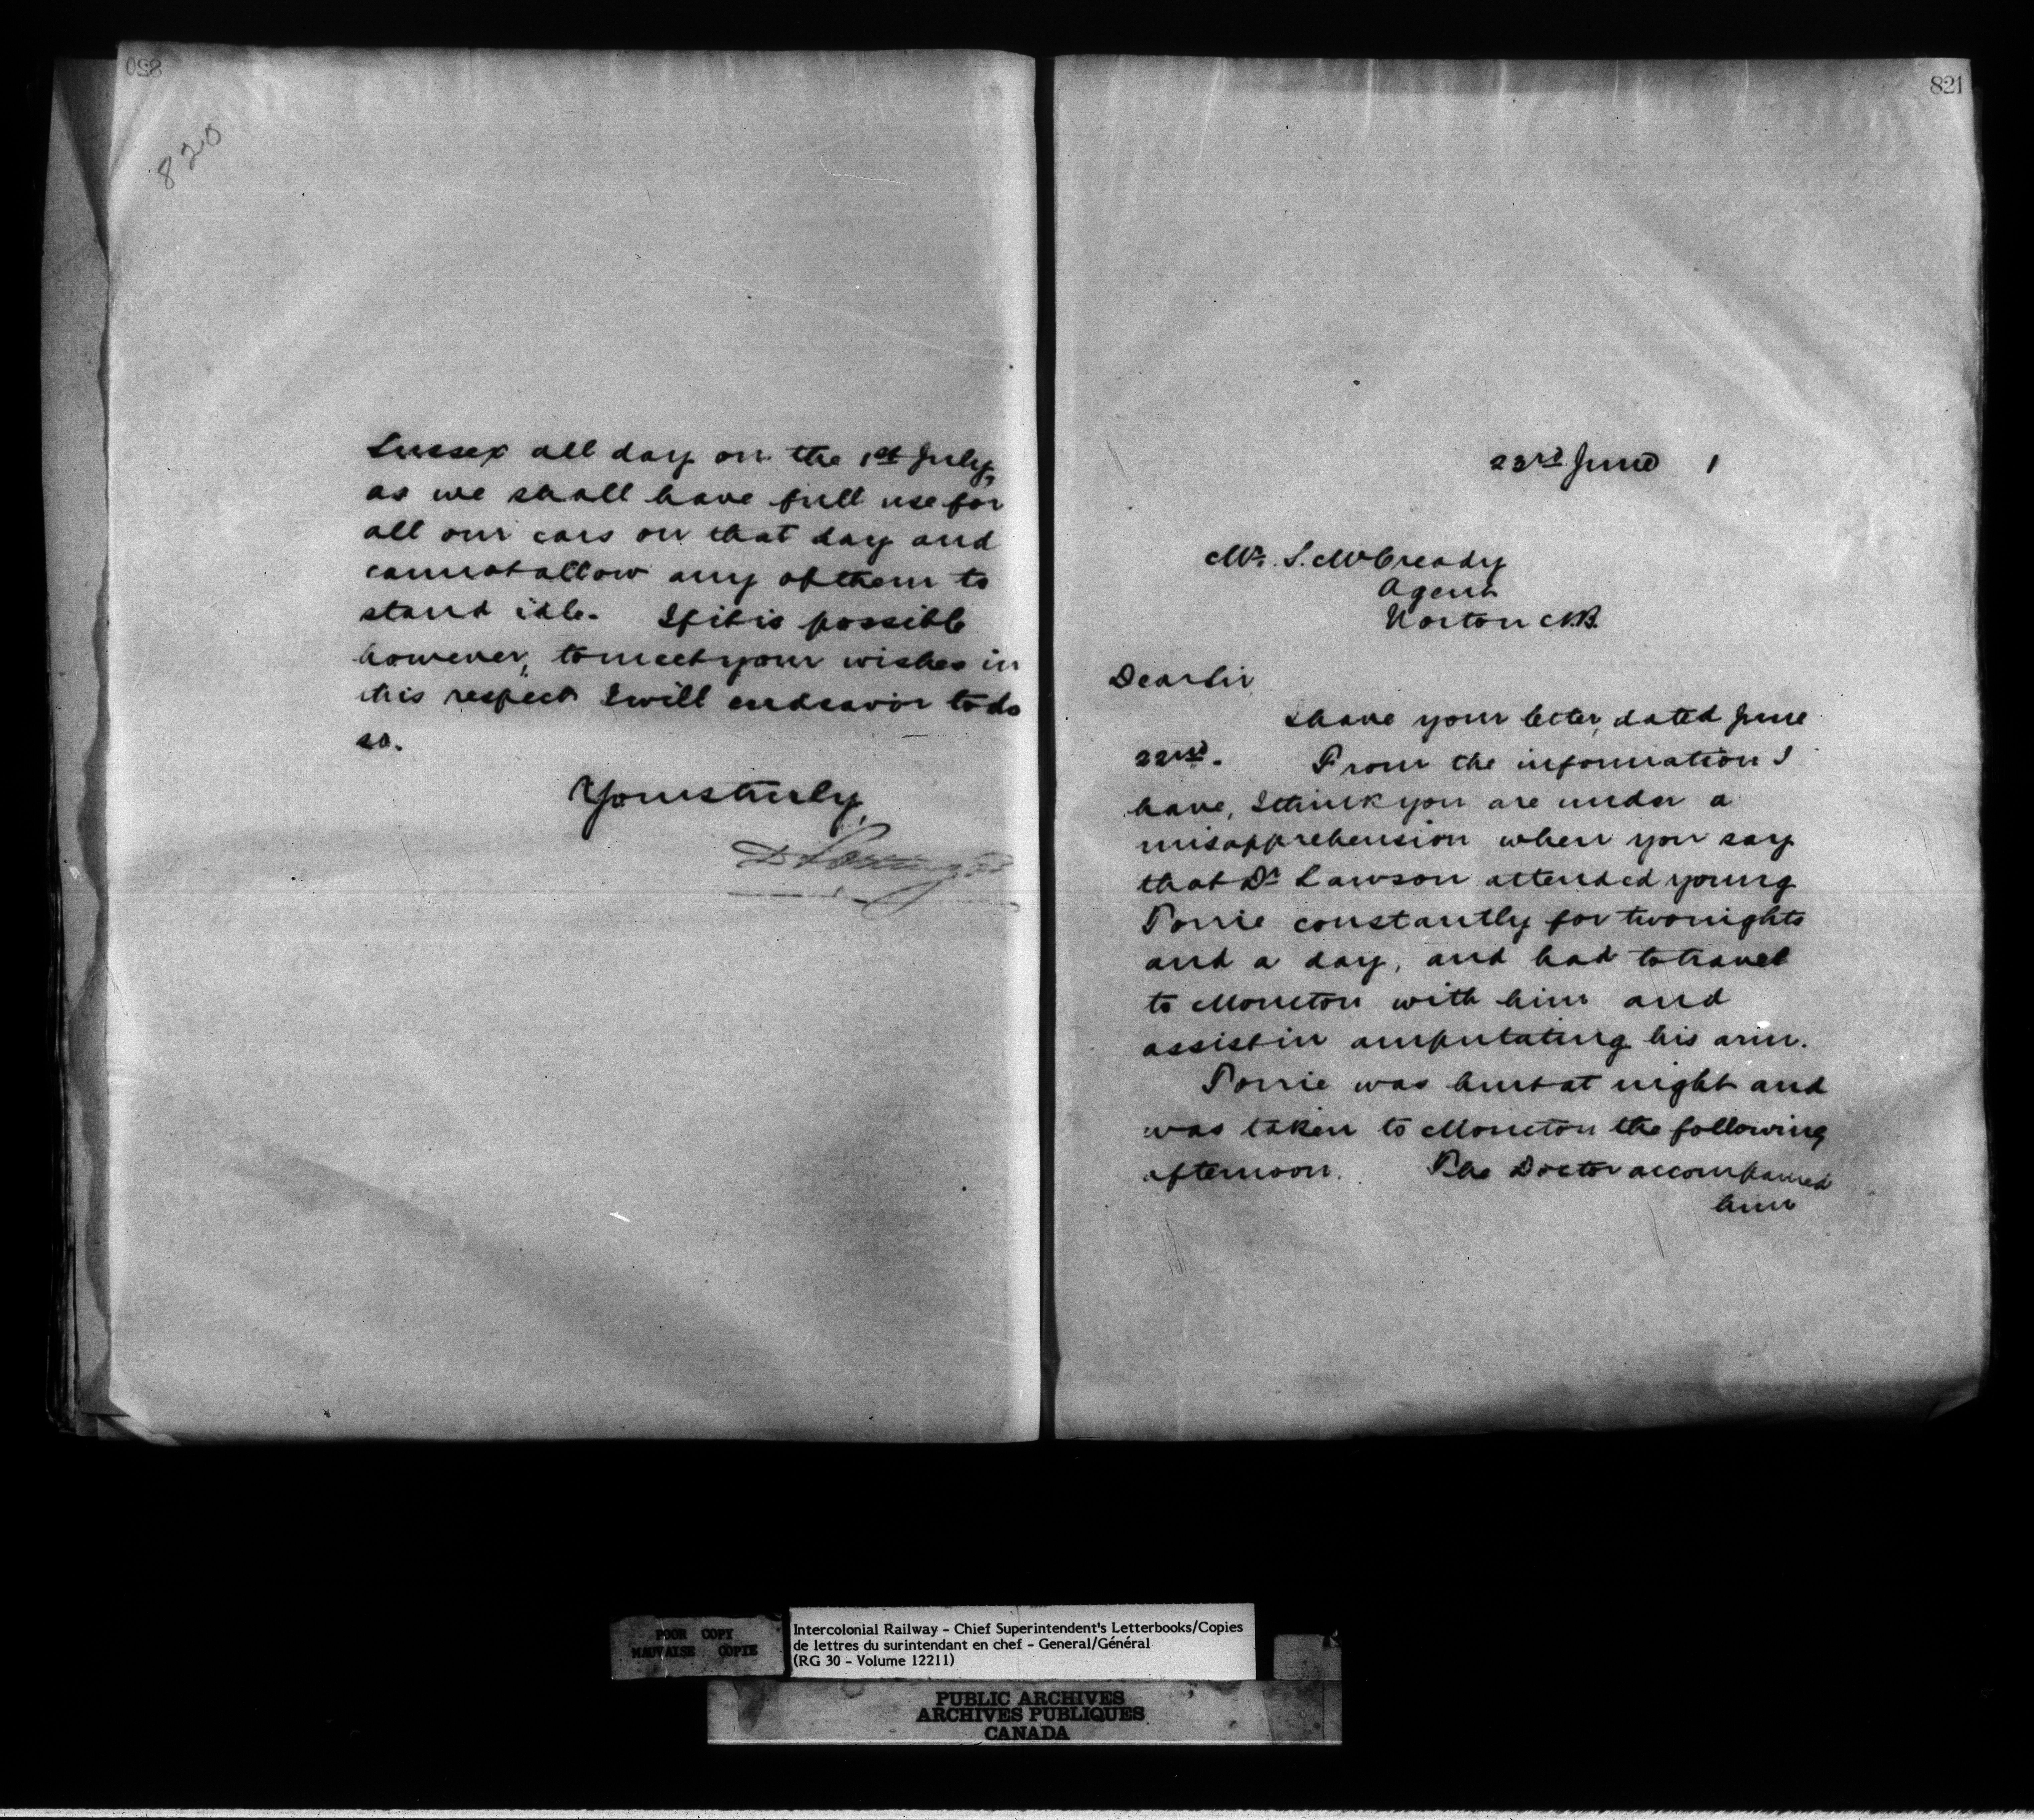 820
Sussex all day on the 1st July,
as we shall have full use for
all our cars on that day and
cannot allow any of them to
stand idle. If it is possible
however, to meet your wishes in
this respect I will endeavor to do
so.
Yours truly,
D Pottinger
821
23rd June 1
Mr. S. McCready
Agent
Norton N.B.
Dear Sir
I have your letter, dated June
22nd. From the information I
have, I think you are under a
misapprehension when you say
that Dr Lawson attended young
Torrie constantly for two nights
and a day, and had to travel
to Moncton with him and
assist in amputating his arm.
Torrie was hurt at night and
was taken to Moncton the following
afternoon. The Doctor accompanied
him
POOR COPY
MAUVAISE COPIE
Intercolonial Railway - Chief Superintendent's Letterbooks/Copies
de lettres du surintendant en chef - General/Général
(RG 30 - Volume 12211)
PUBLIC ARCHIVES
ARCHIVES PUBLIQUES
CANADA